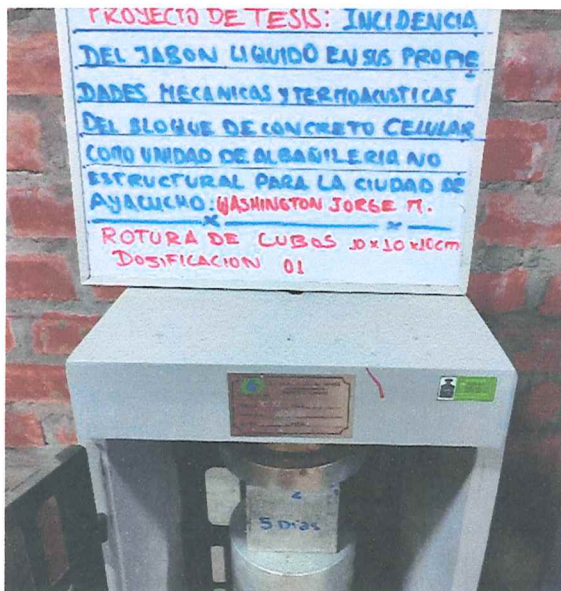 PROYECTO DE TESIS: INCIDENCIA
DEL JABON LIQUIDO EN SUS PROPIE
DADES MECANICAS Y TERMOACUSTICAS
DEL BLOQUE DE CONCRETO CELULAR
COMO UNIDAD DE ALBAÑILERIA NO
ESTRUCTURAL PARA LA CIUDAD DE
AYACUCHO. WASHINGTON JORGE M.
ROTURA DE CUBOS 10x10x10cm
DOSIFICACION 01
2
5 Dias